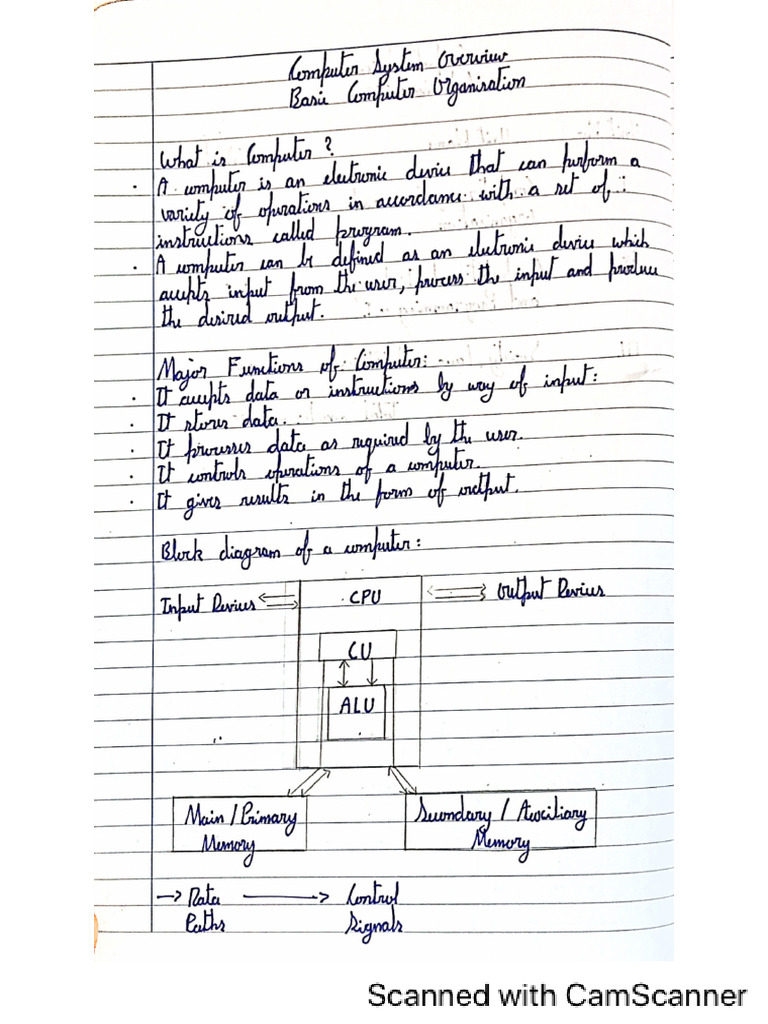 Computer System Overview
Basic Computer Organisation
What is Computer ?
· A computer is an electronic device that can perform a
variety of operations in accordance with a set of :
instructions called program.
· A computer can be defined as an electronic device which
accepts input from the user, process the input and produce
the desired output.
Major Functions of Computer:
· It accepts data or instructions by way of input:
· It stores data.
· It processes data as required by the user.
· It controls operations of a computer.
· It gives results in the form of output.
Block diagram of a computer:
Input Devices CPU Output Devices
CU
ALU
Main / Primary Secondary / Auxiliary
Memory Memory
→ Data → Control
Paths Signals
Scanned with CamScanner